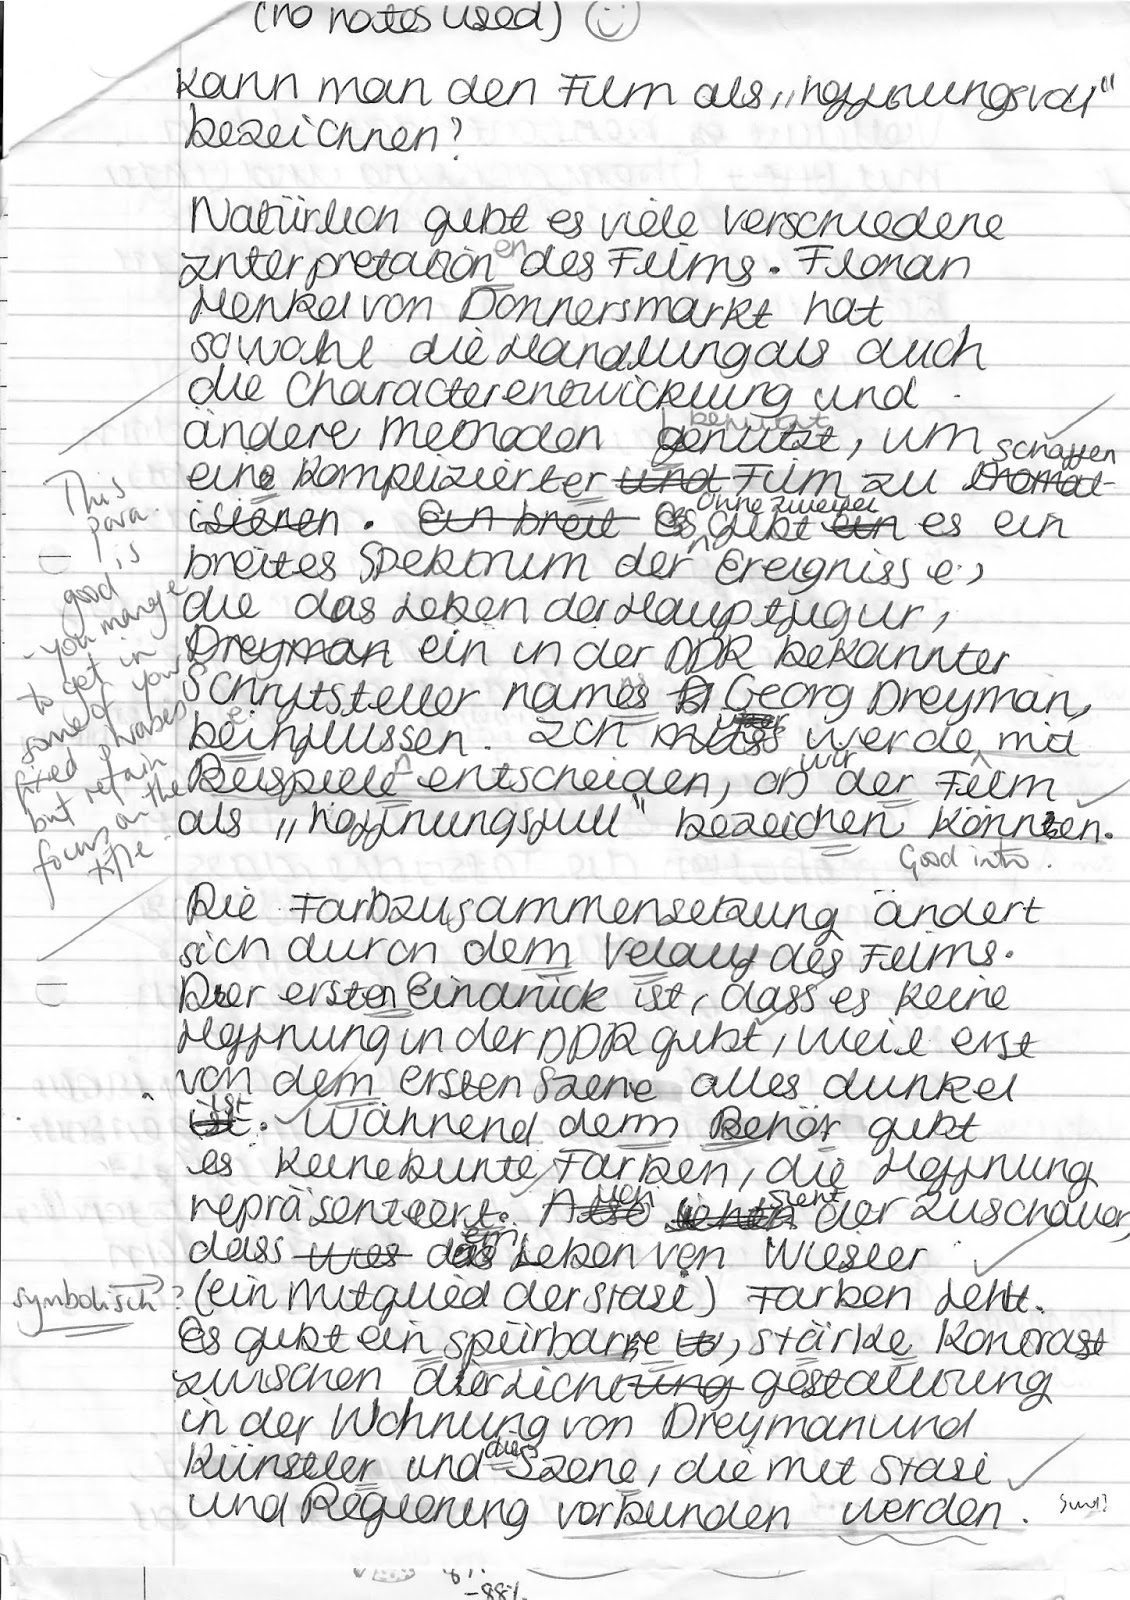 (no notes used)
Kann man den Film als „hoffnungsvoll"
bezeichnen?
Natürlich gibt es viele verschiedene
Interpretationen des Films. Florian
Henkel von Donnersmarkt hat
sowohl die Handlung als auch
die Characterentwicklung und
ändere Methoden genützt, um
benutzt
schaffen
eine komplizierter und Film zu Dramat-
isieren. Ein breit Es gibt ein es ein
ohne zweifel
breites Spektrum der Ereignisse,
die das Leben der Hauptfigur,
Dreyman ein in der DDR bekannter
Schriftsteller names Georg Dreyman,
beinflussen. Ich muss werde mit
Beispielen entscheiden, ob der Film
wir
als „hoffnungsfull" bezeichen könnten.
This para. is good - you manage to get in some of your fixed phrases but retain the focus on the title.
Good intro.
Die Farbzusammensetzung ändert
sich durch dem Velauf des Films.
Der ersten Eindrück ist, dass es keine
Hoffnung in der DDR gibt, weil erst
von dem ersten Szene alles dunkel
ist. Während dem Behör gibt
es keine bunte Farben, die Hoffnung
repräsentiert. Also sieht der Zuschauer,
dass was das Leben von Wiesler
symbolisch?
(ein Mitglied der Stasi) Farben fehlt.
Es gibt ein spürbare, stärke Kontrast
zwischen der Lichtung gestaltung
in der Wohnung von Dreyman und
Künstler und dies Szene, die mit Stasi
und Regierung verbunden werden.
sind?
-88%